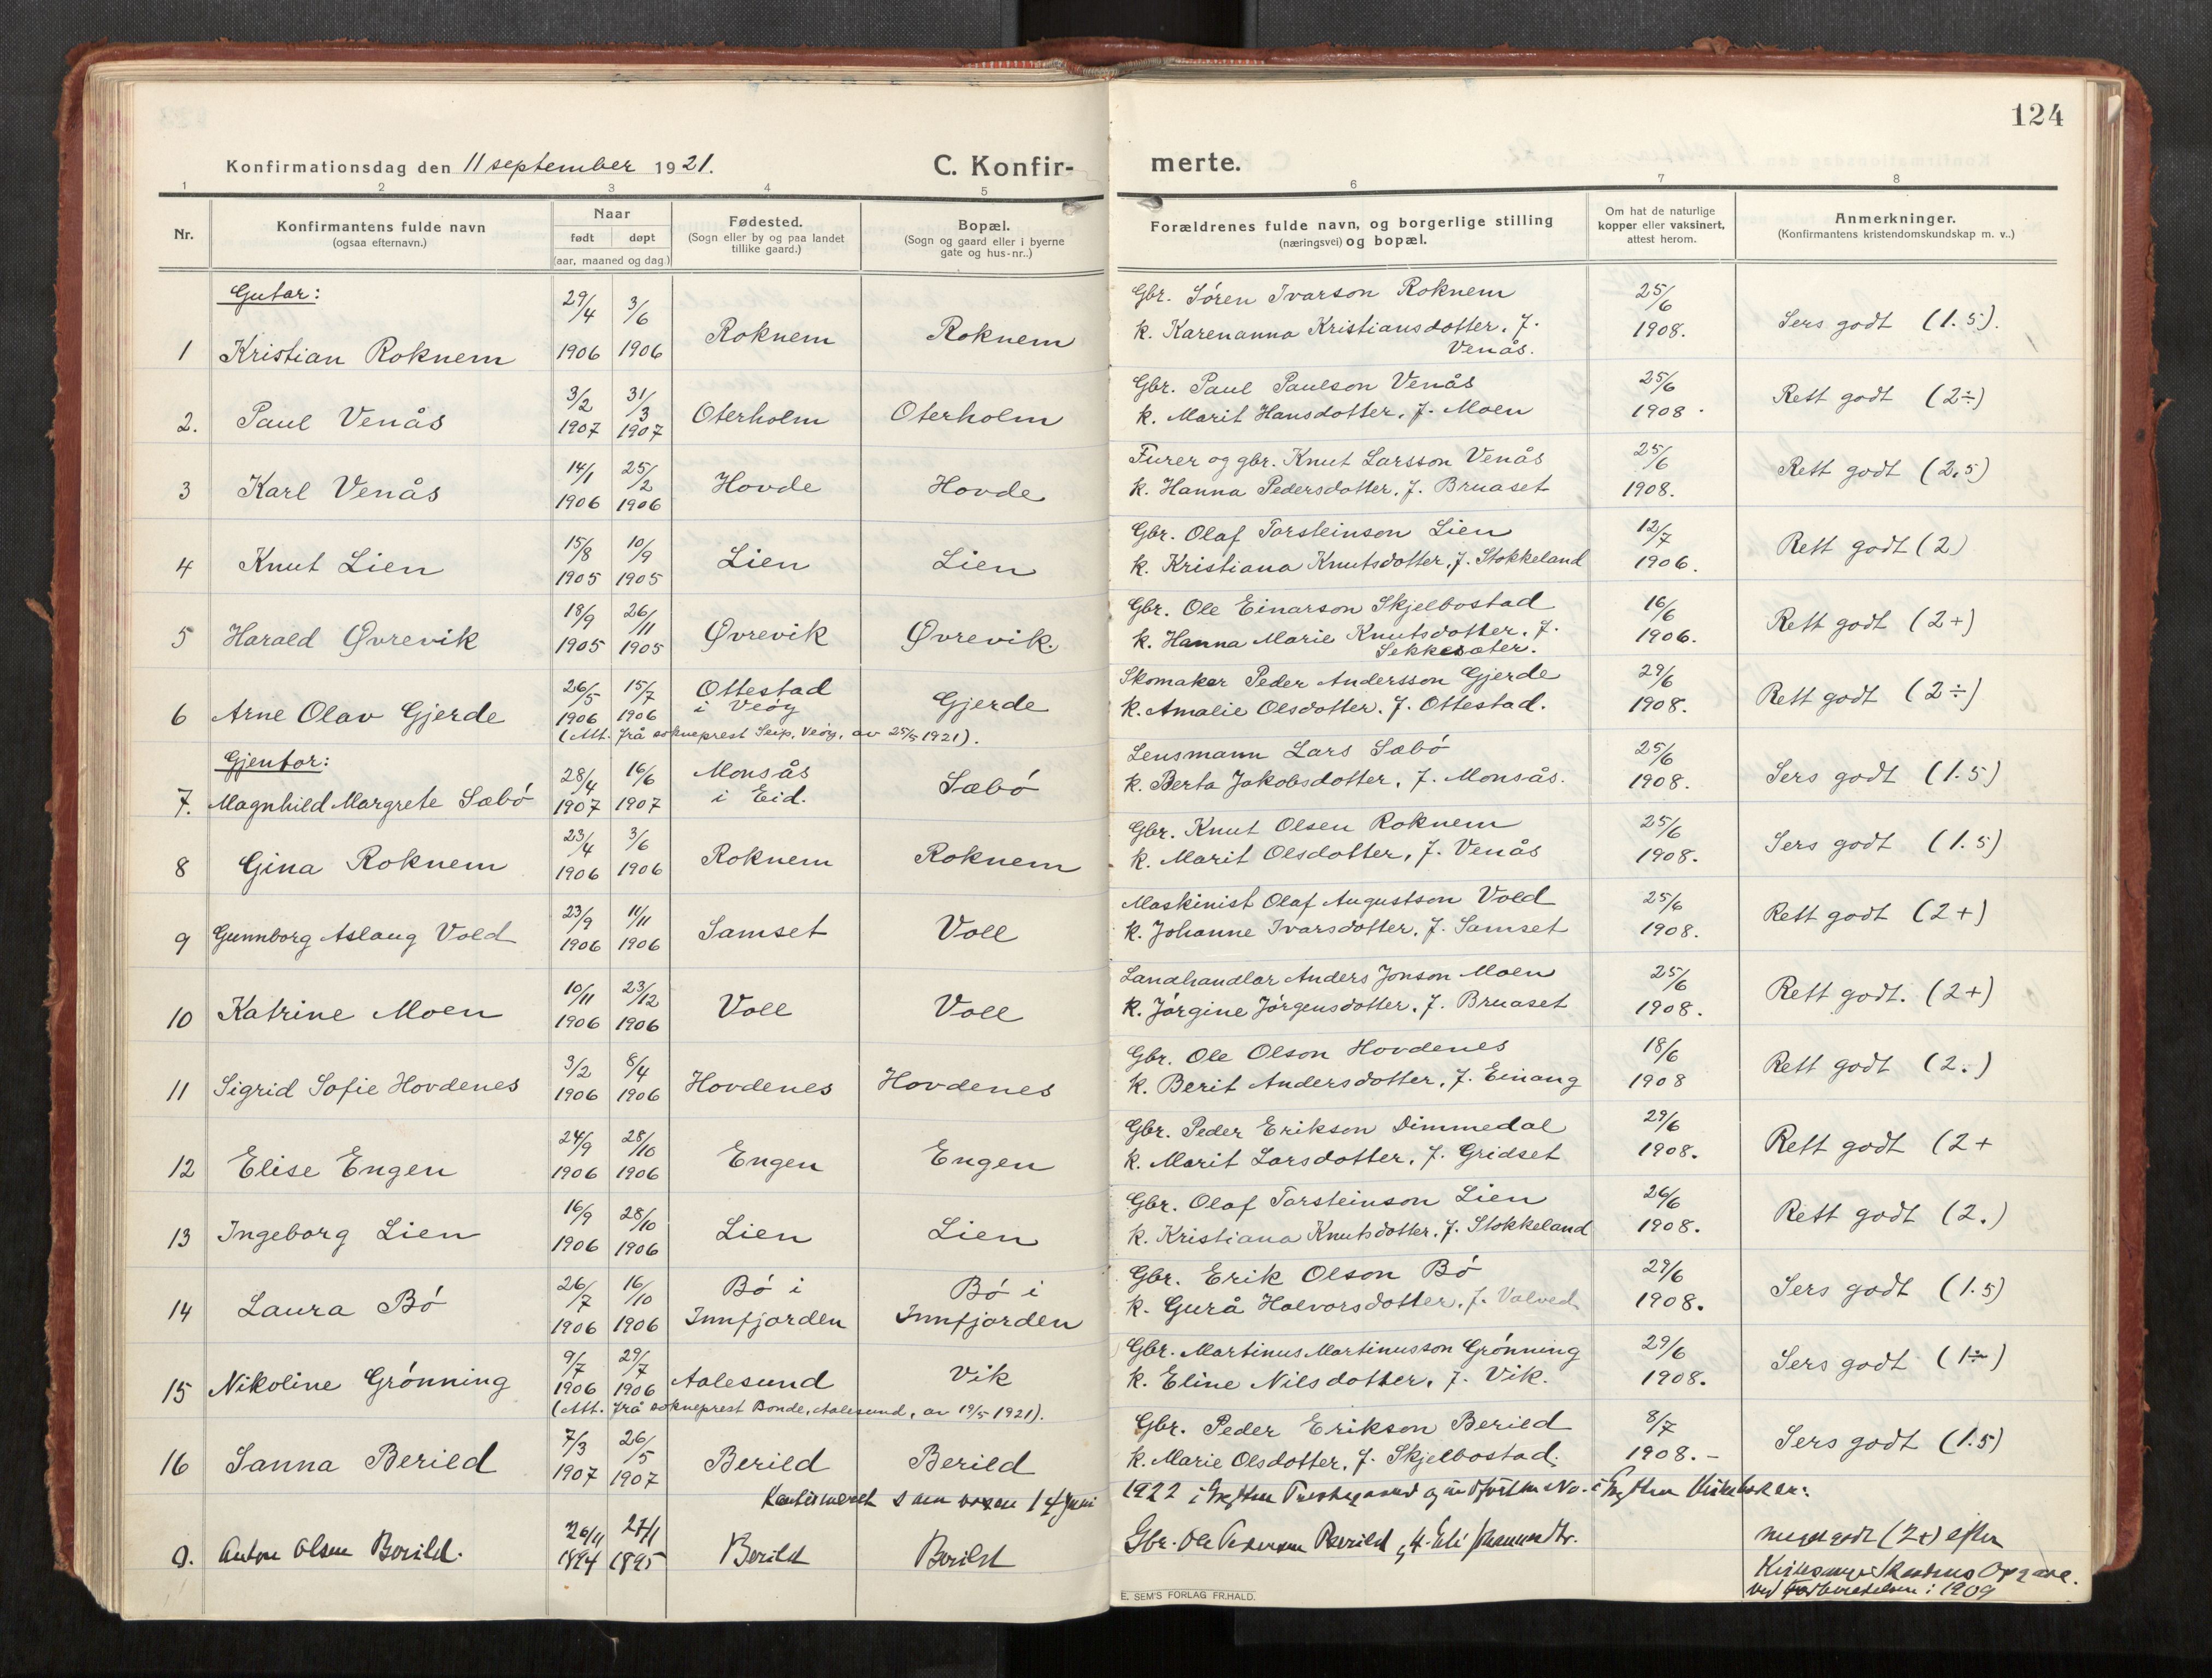 124
Konfirmationsdag den 11 september 1921.
C. Konfirmerte.
1 2 3 4 5 6 7 8
Nr. | Konfirmantens fulde navn (ogsaa efternavn.) | Naar født døpt (aar, maaned og dag.) | Fødested. (Sogn eller by og paa landet tillike gaard.) | Bopæl. (Sogn og gaard eller i byerne gate og hus-nr..) | Forældrenes fulde navn, og borgerlige stilling (næringsvei) og bopæl. | Om hat de naturlige kopper eller vaksinert, attest herom. | Anmerkninger. (Konfirmantens kristendomskundskap m. v..)
Gutar:
1 Kristian Roknem 29/4 1906 3/6 1906 Roknem Roknem Gbr. Søren Ivarson Roknem
k. Karenanna Kristiansdotter, f. Venås. 25/6 1908. Sers godt (1.5).
2. Paul Venås 3/2 1907 31/3 1907 Oterholm Oterholm Gbr. Paul Paulson Venås
k. Marit Hansdotter, f. Moen 25/6 1908. Rett godt (2÷)
3 Karl Venås 14/1 1906 25/2 1906 Hovde Hovde Furer og gbr. Knut Larsson Venås
k. Hanna Pedersdotter, f. Bruaset 25/6 1908. Rett godt (2.5)
4 Knut Lien 15/8 1905 10/9 1905 Lien Lien Gbr. Olaf Torsteinson Lien
k. Kristiana Knutsdotter, f. Stokkeland 12/7 1906. Rett godt (2)
5 Harald Øvrevik 18/9 1905 26/11 1905 Øvrevik Øvrevik. Gbr. Ole Einarson Skjelbostad
k. Hanna Marie Knutsdotter, f. Sekkesæter. 16/6 1906. Rett godt (2+)
6 Arne Olav Gjerde 26/5 1906 15/7 1906 Ottestad i Veøy Gjerde Skomaker Peder Andersson Gjerde
k. Amalie Olsdotter, f. Ottestad. 29/6 1908. Rett godt (2÷)
(Att. frå sokneprest Seip, Veøy, av 25/5 1921).
Gjentor:
7. Magnhild Margrete Sæbø 28/4 1907 16/6 1907 Monsås i Eid. Sæbø Lensmann Lars Sæbø
k. Berta Jakobsdotter, f. Monsås. 25/6 1908. Sers godt (1.5)
8 Gina Roknem 23/4 1906 3/6 1906 Roknem Roknem Gbr. Knut Olsen Roknem
k. Marit Olsdotter, f. Venås 25/6 1908. Sers godt (1.5)
9 Gunnborg Aslaug Vold 23/9 1906 11/11 1906 Samset Voll Maskinist Olaf Augustson Vold
k. Johanne Ivarsdotter, f. Samset 25/6 1908. Rett godt (2+)
10 Katrine Moen 10/11 1906 23/12 1906 Voll Voll Landhandlar Anders Jonson Moen
k. Jørgine Jørgensdotter, f. Bruaset 25/6 1908. Rett godt. (2+)
11 Sigrid Sofie Hovdenes 3/2 1906 8/4 1906 Hovdenes Hovdenes Gbr. Ole Olson Hovdenes
k. Berit Andersdotter, f. Einang 18/6 1908 Rett godt (2.)
12 Elise Engen 24/9 1906 28/10 1906 Engen Engen Gbr. Peder Erikson Dimmedal
k. Marit Larsdotter, f. Gridset 29/6 1908. Rett godt (2+
13 Ingeborg Lien 16/9 1906 28/10 1906 Lien Lien Gbr. Olaf Torsteinson Lien
k. Kristiana Knutsdotter, f. Stokkeland 26/6 1908. Rett godt (2.)
14 Laura Bø 26/7 1906 16/10 1906 Bø i Innfjorden Bø i Innfjorden Gbr. Erik Olson Bø
k. Gurå Halvorsdotter, f. Valved 29/6 1908. Sers godt (1.5)
15 Nikoline Grønning 9/7 1906 29/7 1906 Aalesund Vik Gbr. Martinus Martinusson Grønning
k. Eline Nilsdotter, f. Vik. 29/6 1908. Sers godt (1÷)
(Att. frå sokneprest Bonde, Aalesund, av 19/5 1921).
16 Sanna Berild 7/3 1907 26/5 1907 Berild Berild Gbr. Peder Erikson Berild
k. Marie Olsdotter, f. Skjelbostad. 8/7 1908.- Sers godt (1.5)
Konfirmeret som voxen 14 Juni 1922 i Grytten
0. Anton Olsen Berild. 26/11 1894 27/1 1895 Berild Berild Gbr. Ole Pedersen Berild meget godt (2+) efter
1909
E. SEM'S FORLAG FR.HALD.